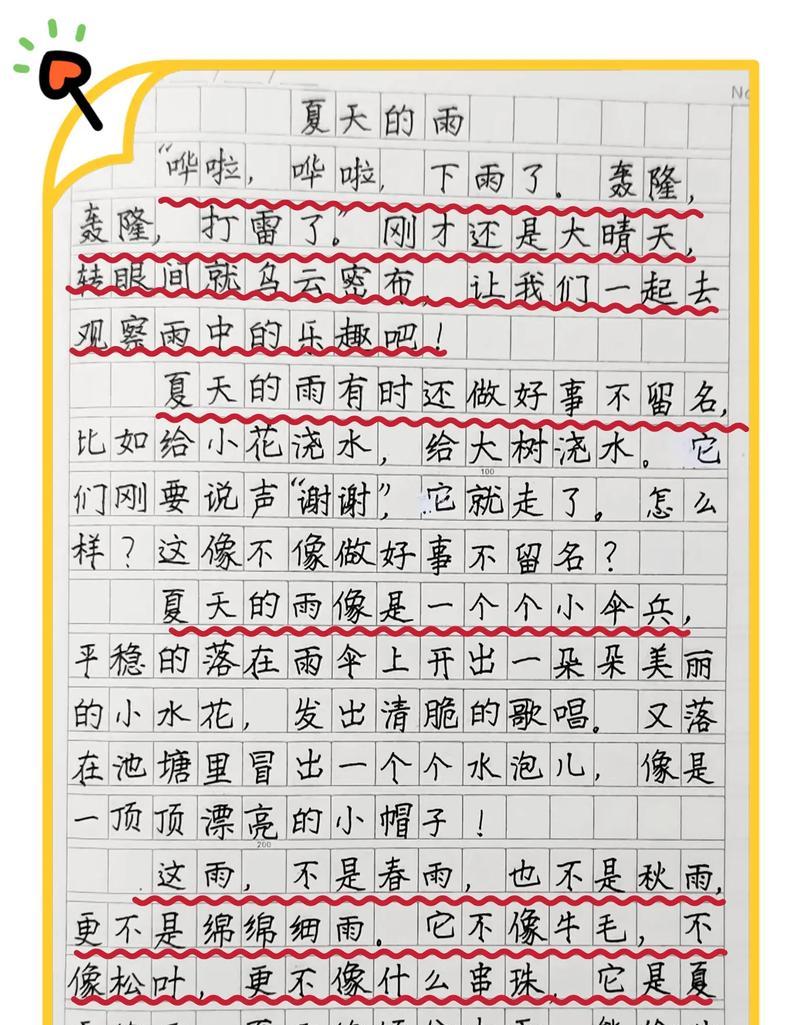 No
夏天的雨
“哗啦，哗啦，下雨了。轰隆，
轰隆，打雷了”。刚才还是大晴天，
转眼间就乌云密布，让我们一起去
观察雨中的乐趣吧！
夏天的雨有时还做好事不留名，
比如给小花浇水，给大树浇水。它
100
们刚要说声“谢谢”，它就走了。怎么
样？这像不像做好事不留名？
夏天的雨像是一个个小伞兵，
平稳的落在雨伞上开出一朵朵美丽
的小水花，发出清脆的歌唱。又落
在池塘里冒出一个个水泡儿，像是
一顶顶漂亮的小帽子！
200
这雨，不是春雨，也不是秋雨，
更不是绵绵细雨。它不像牛毛，不
像松叶，更不像什么串珠，它是夏